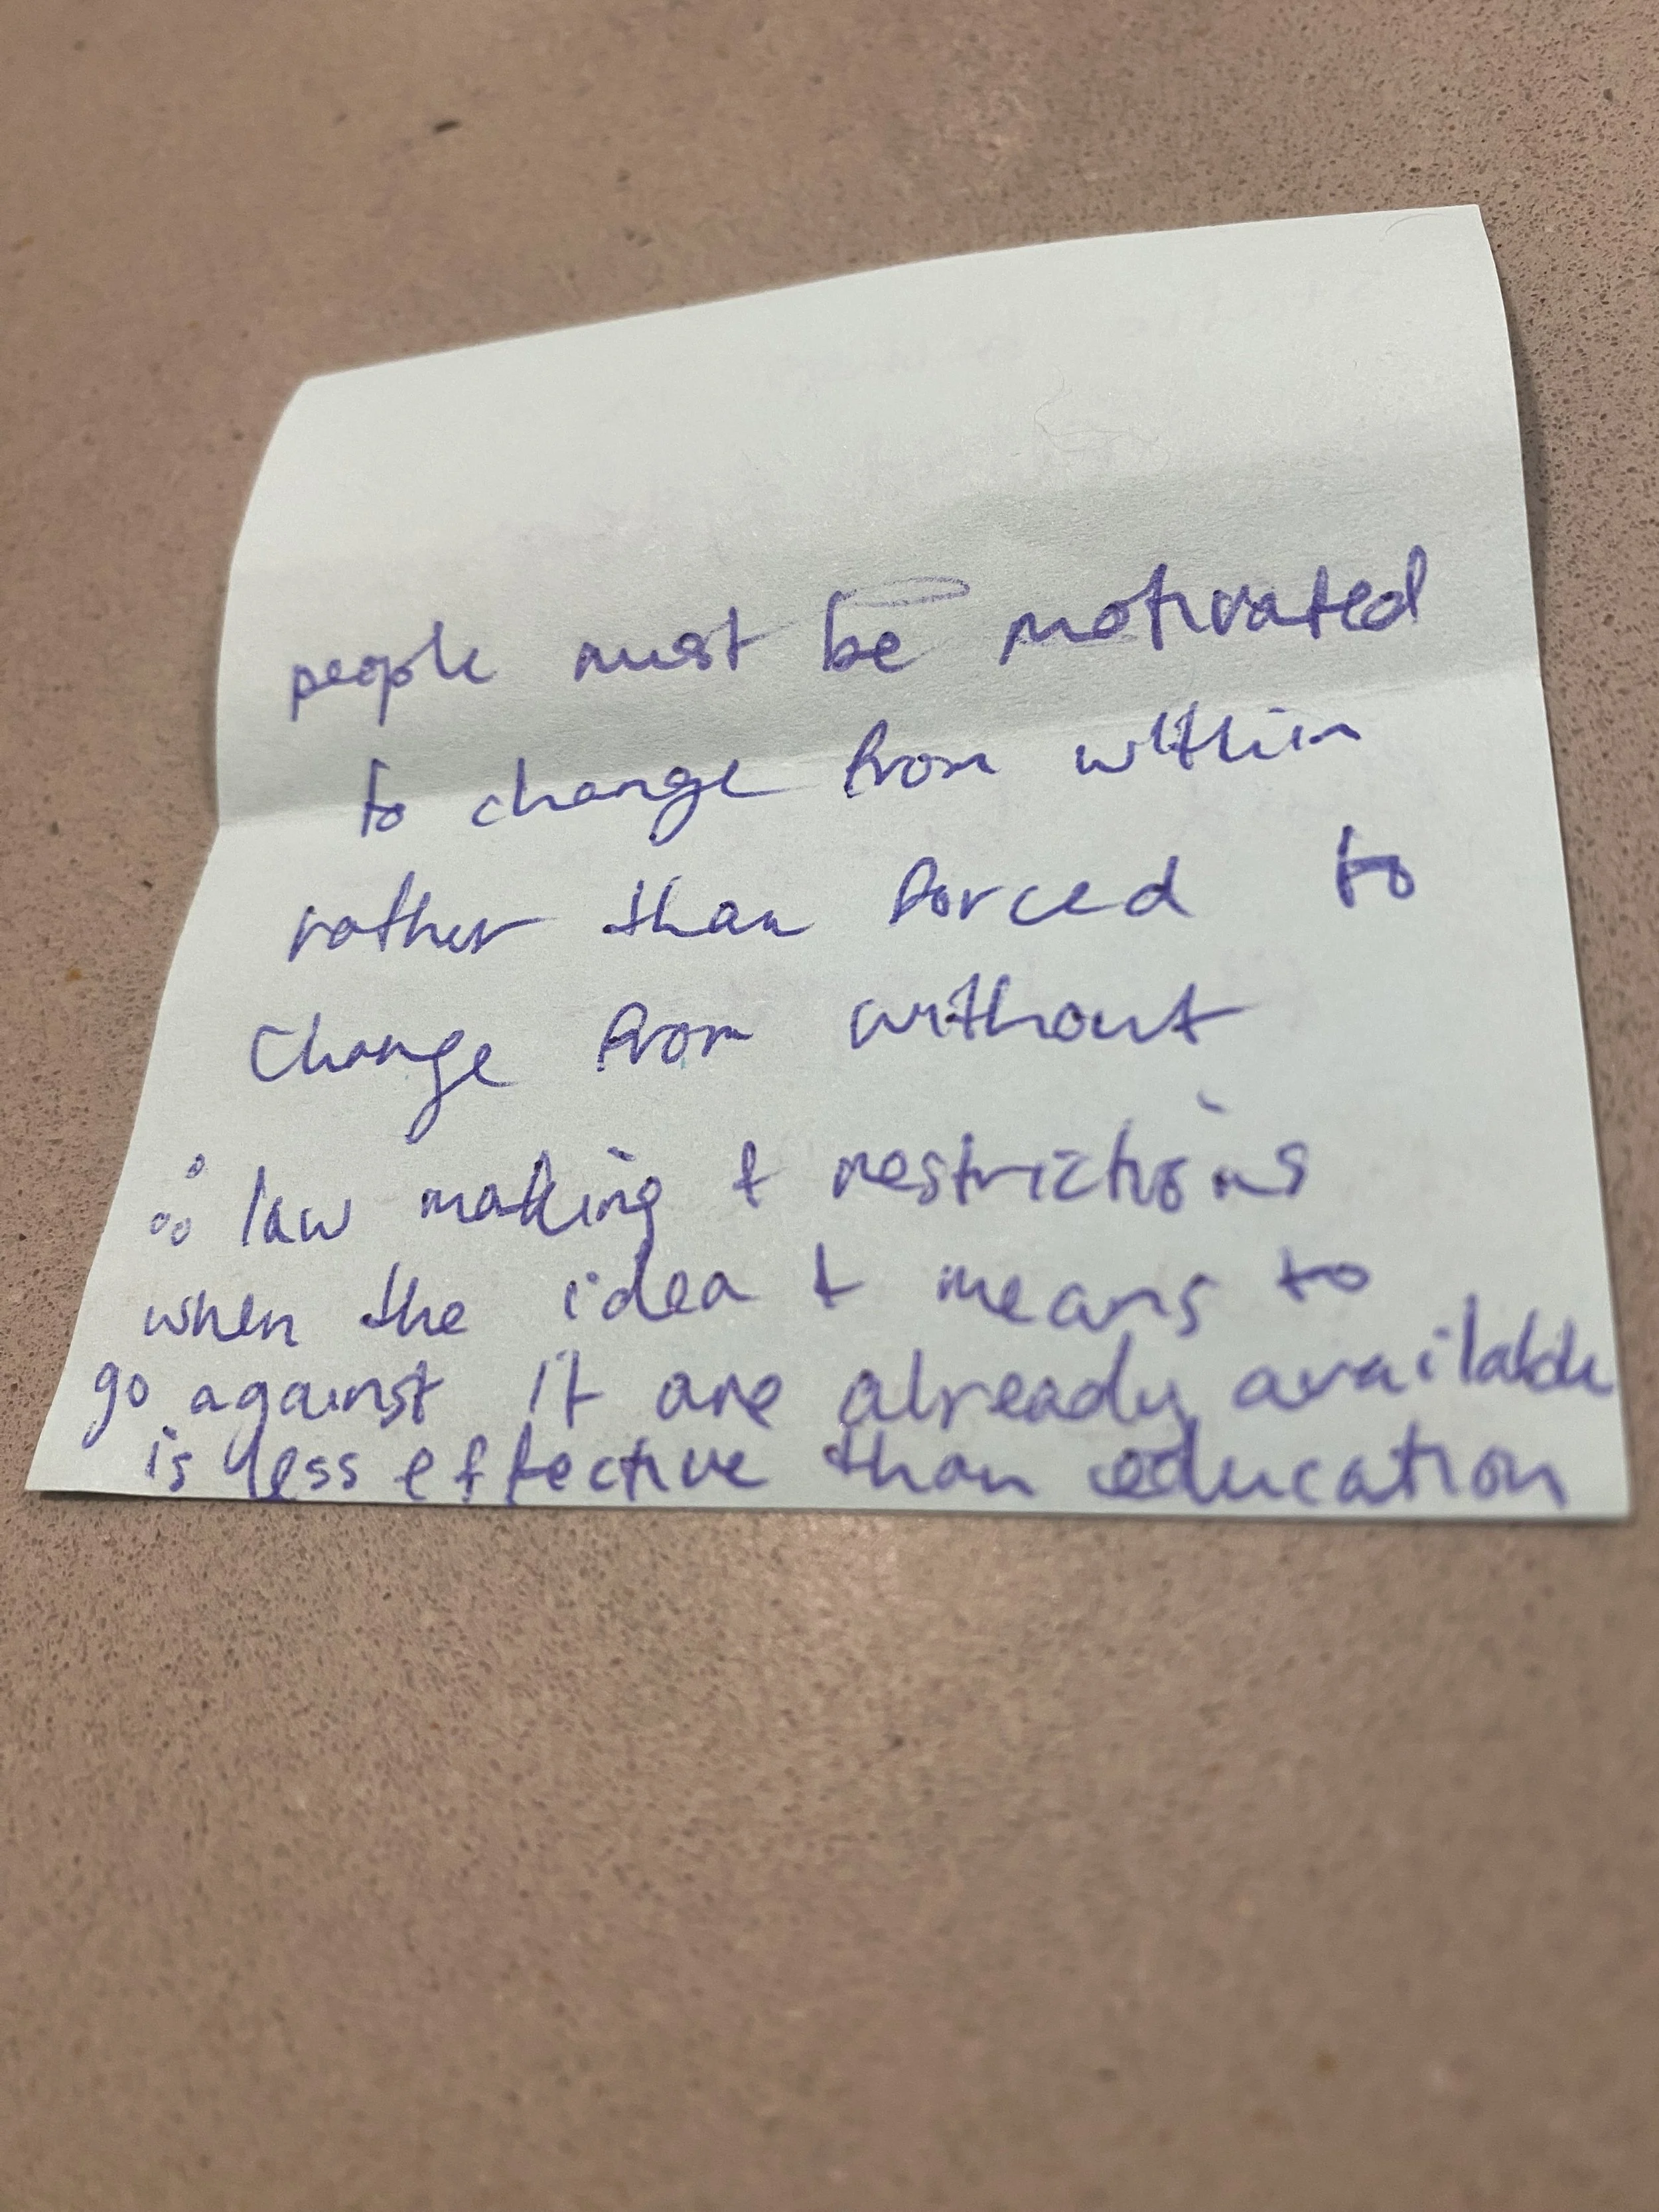 people must be motivated
to change from within
rather than forced to
change from without
∴ law making & restrictions
when the idea & means to
go against it are already available
is less effective than education